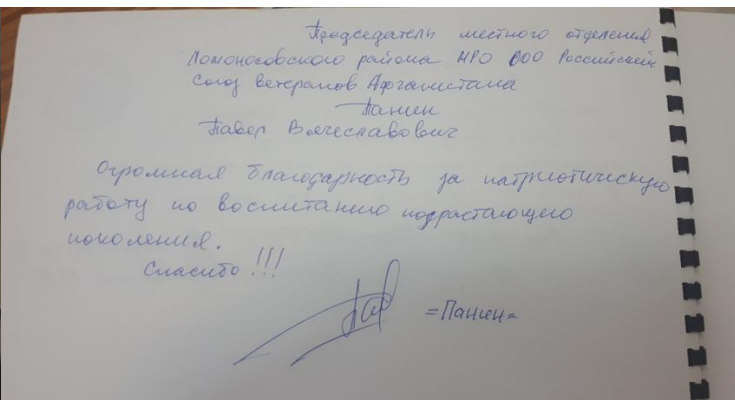 Председатель местного отделения
Ломоносовского района МРО ООО Российский
Союз ветеранов Афганистана
Панин
Павел Вячеславович
Огромная благодарность за патриотическую
работу по воспитанию подрастающего
поколения.
Спасибо!!!
=Панин=